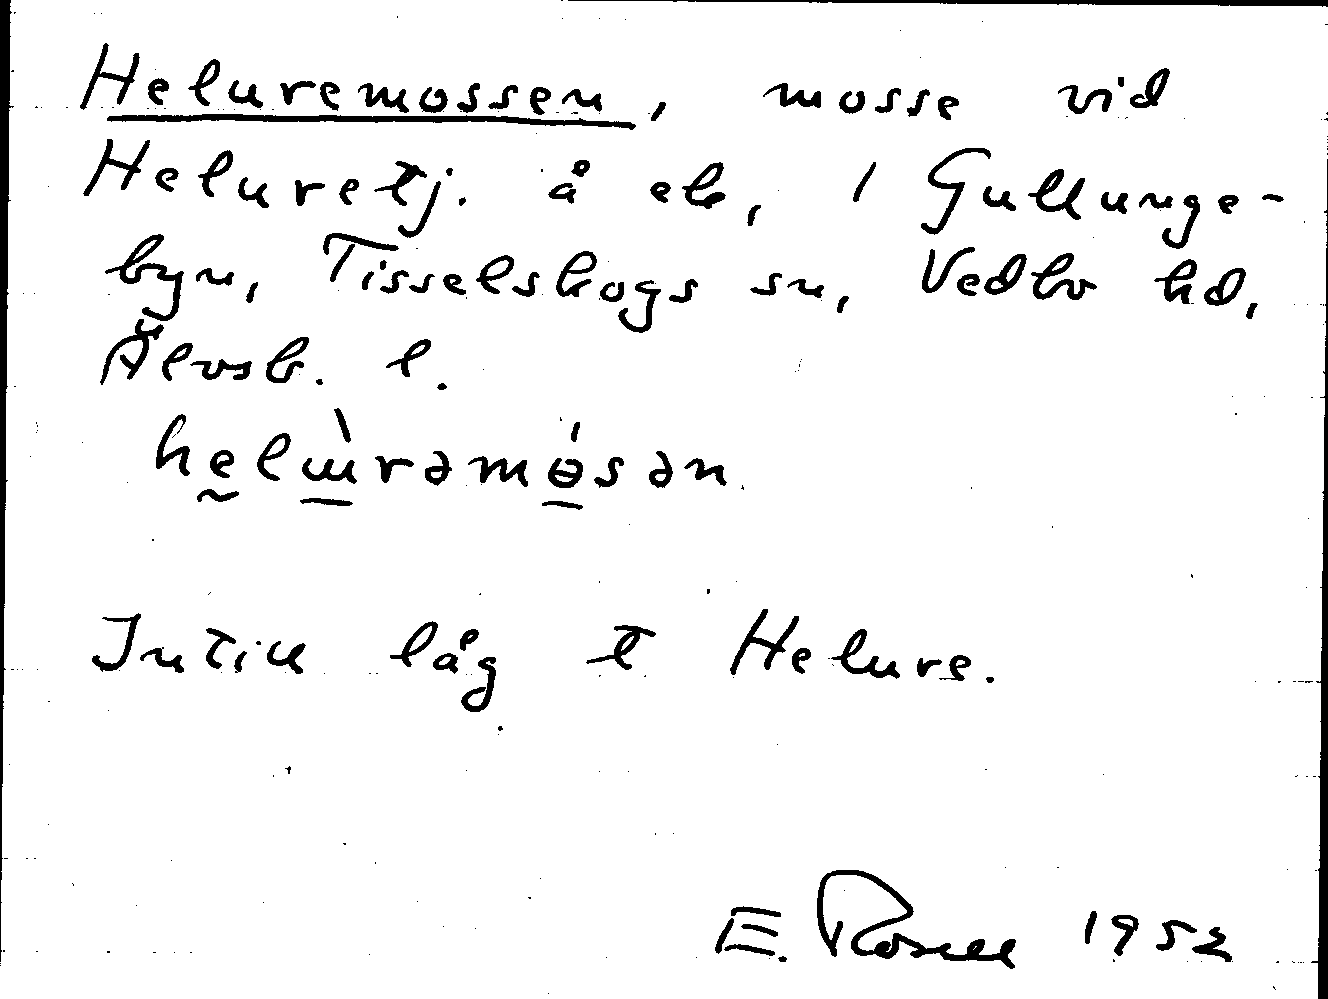 Heluremossen, mosse vid
Heluretj. å eb, 1 Gullunge-
byn, Tisselskogs sn, Vedbo hd,
Älvsb. l.
helɯ̀rəmɵ́sən
Intill låg t Helure.
E. Rosell 1952